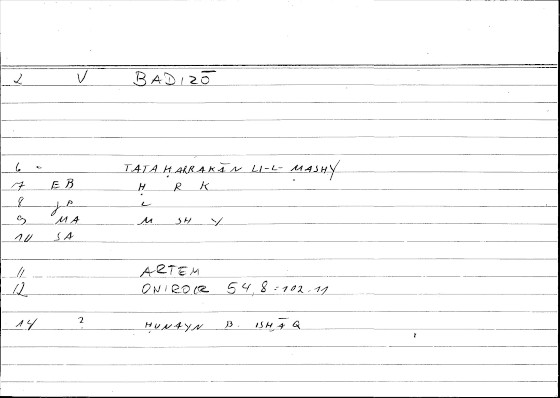 2 V BADIZŌ
6 - TATAḤARRAKĀN LI-L-MASHY
7 EB Ḥ R K
8 JP L
9 MA M SH Y
10 SA
11 ARTEM
12 ONIROCR 54,8 = 102.11
14 2 ḤUNAYN B. ISḤĀQ